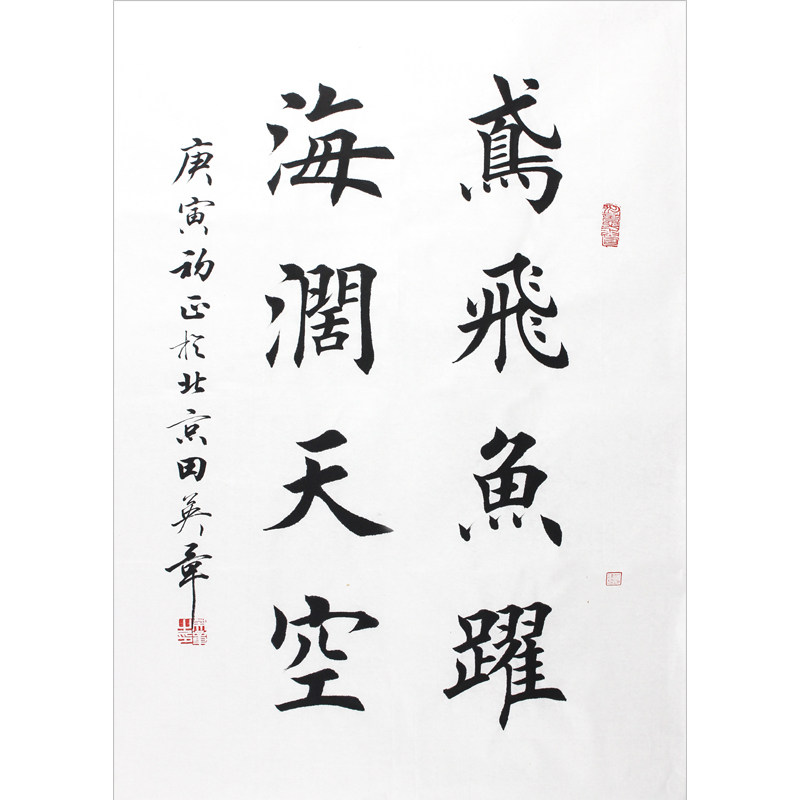 鳶飛魚躍
海濶天空
庚寅初正於北京田英章